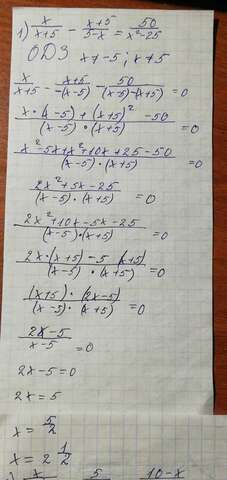 1) x/(x+5) - (x+5)/(5-x) = 50/(x²-25)
ОДЗ x≠-5; x≠5
x/(x+5) - (x+5)/(-(x-5)) - 50/((x-5)·(x+5)) = 0
(x·(x-5)+(x+5)²-50)/((x-5)·(x+5)) = 0
(x²-5x+x²+10x+25-50)/((x-5)·(x+5)) = 0
(2x²+5x-25)/((x-5)·(x+5)) = 0
(2x²+10x-5x-25)/((x-5)·(x+5)) = 0
(2x·(x+5)-5(x+5))/((x-5)·(x+5)) = 0
((x+5)·(2x-5))/((x-5)·(x+5)) = 0
(2x-5)/(x-5) = 0
2x-5=0
2x=5
x = 5/2
x = 2 1/2
x 5 10-x